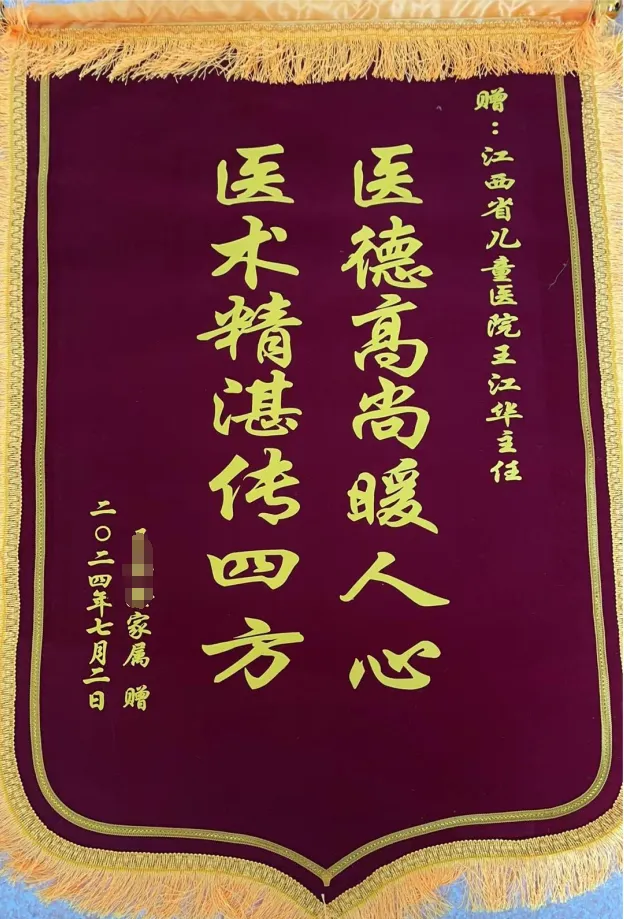 赠：江西省儿童医院王江华主任
医德高尚暖人心
医术精湛传四方
家属 赠
二〇二四年七月二日